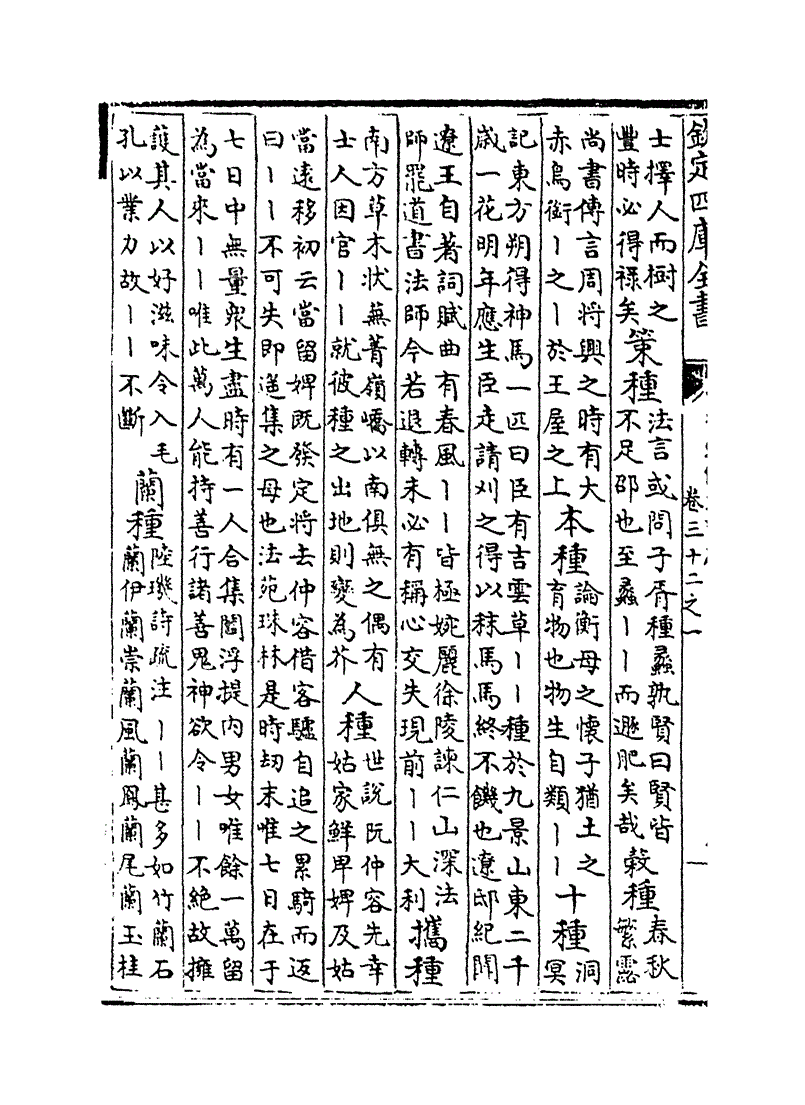 欽定四庫全書
卷三十二之一
士擇人而樹之
豐時必得祿矣
策種
法言或問子胥種蠡孰賢曰賢皆
不足邵也至蠡丨丨而遯肥矣哉
穀種
春秋
繁露
尚書傳言周將興之時有大
赤烏銜丨之丨於王屋之上
本種
論衡母之懷子猶土之
育物也物生自類丨丨
十種
洞
冥
記東方朔得神馬一匹曰臣有吉雲草丨丨種於九景山東二千
歲一花明年應生臣走請刈之得以秣馬馬終不饑也遼邸紀聞
遼王自著詞賦曲有春風丨丨皆極婉麗徐陵諫仁山深法
師罷道書法師今若退轉未必有稱心交失現前丨丨大利
攜種
南方草木狀蕪菁嶺嶠以南俱無之偶有
士人因官丨丨就彼種之出地則變為芥
人種
世說阮仲容先幸
姑家鮮卑婢及姑
當遠移初云當留婢既發定將去仲容借客驢自追之累騎而返
曰丨丨不可失即遥集之母也法苑珠林是時劫末唯七日在于
七日中無量衆生盡時有一人合集閻浮提内男女唯餘一萬留
為當來丨丨唯此萬人能持善行諸善鬼神欲令丨丨不絶故擁
護其人以好滋味令入毛
孔以業力故丨丨不斷
蘭種
陸璣詩疏注丨丨甚多如竹蘭石
蘭伊蘭崇蘭風蘭鳳蘭尾蘭玉桂